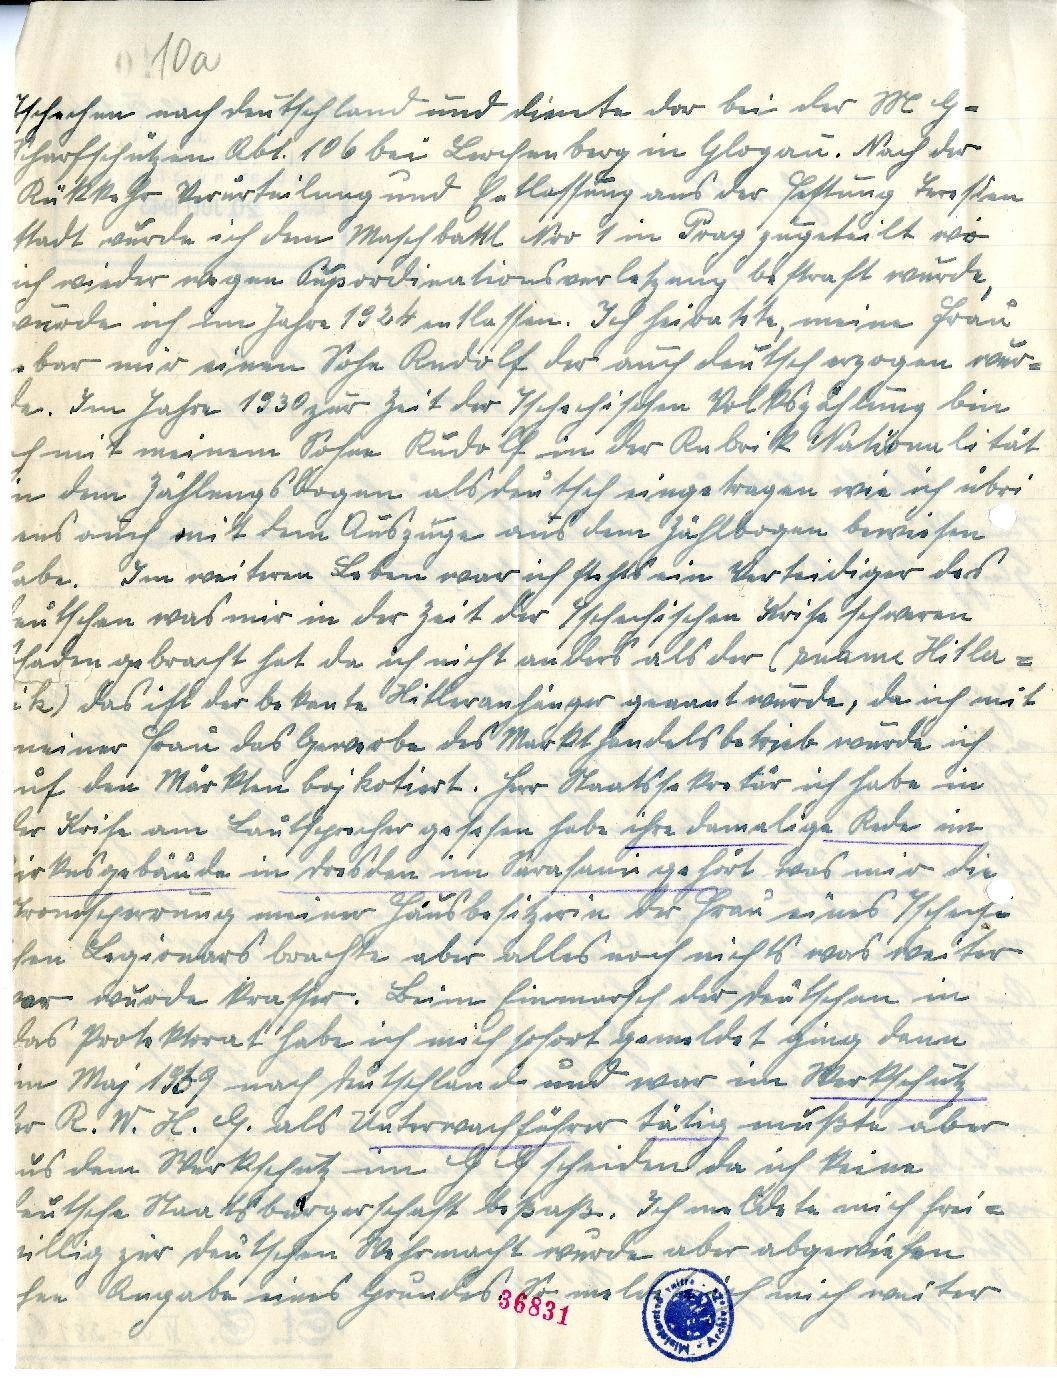 10a
Tschechen nach deutschland und diente dor bei der M G=
Scharfschützen Abt. 106 bei Lerchenberg in Glogau. Nach der
Rükkehr Verurteilung und Entlassung aus der Festung Teresien
stadt wurde ich dem Masch batll Nro 1 in Prag zugeteilt wo
ich wieder wegen Supordinationsverletzung bestraft wurde,
wurde ich im Jahre 1924 entlassen. Ich heiratete, meine Frau
bar mir einen Sohn Rudolf der auch deutsch erzogen wur=
de. Im Jahre 1930 zur Zeit der Tschechischen Volkszählung bin
ch mit meinem Sohne Rudolf in der Rubrik Nationalität
in dem Zählungsbogen als deutsch eingetragen wie ich übri
ens auch mit dem Auszuge aus dem Zählbogen bewiesen
habe. Im weiteren Leben war ich stehts ein Verteidiger des
eutschen was mir in der Zeit der Tschechischen Krise schweren
Schaden gebracht hat da ich nicht anders als der ( Hitla=
ik) das ist der bekente Hitleranhänger genant wurde, da ich mit
meiner Frau das Gewerbe des Markthandelsbetrieb wurde ich
uf den Märkten bojkotiert. Herr Staatssekretär ich habe in
der Krise am Lautsprecher gesesen habe ihre damalige Rede im
irkusgebäude in dresden im Sarasani gehört was mir die
tromsperrung meiner Hausbesitzerin der Frau eines Tscheche
hen Legionars brachte aber alles noch nichts was weiter
war wurde krasser. Beim Einmarsch der deutschen in
das Protektorat habe ich mich sofort gemeldet ging dann
im Maj 1939 nach deutschland und war im Werkschutz
der R. W. H. G. als Unterwachführer tätig mußte aber
us dem Werkschutz im G G scheiden da ich keine
eutsche Staatsbürgerschaft besaß. Ich meldete mich frei=
illig zur deutschen Wehrmacht wurde aber abgewiesen
hne Angabe eines Grundes. So melde ich mich weiter
36831
Archiv